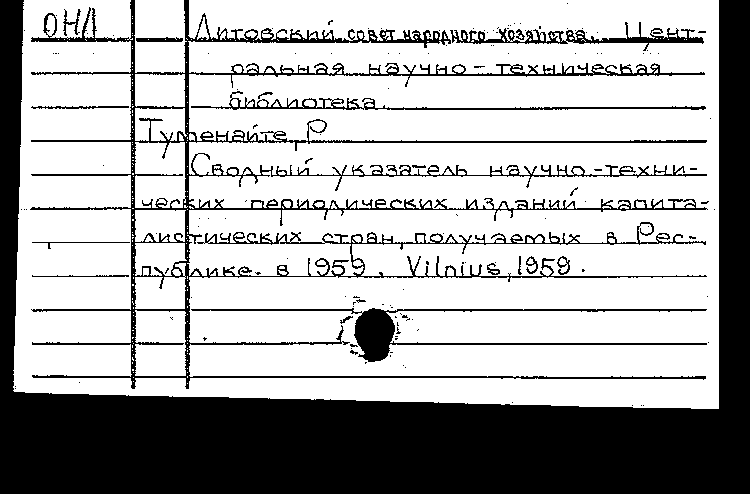 ОНЛ Литовский совет народного хозяйства. Цент-
ральная научно-техническая
библиотека.
Тутенайте, Р
Сводный указатель научно-техни-
ческих периодических изданий капита-
листических стран, получаемых в Рес-
публике. в 1959. Vilnius, 1959.